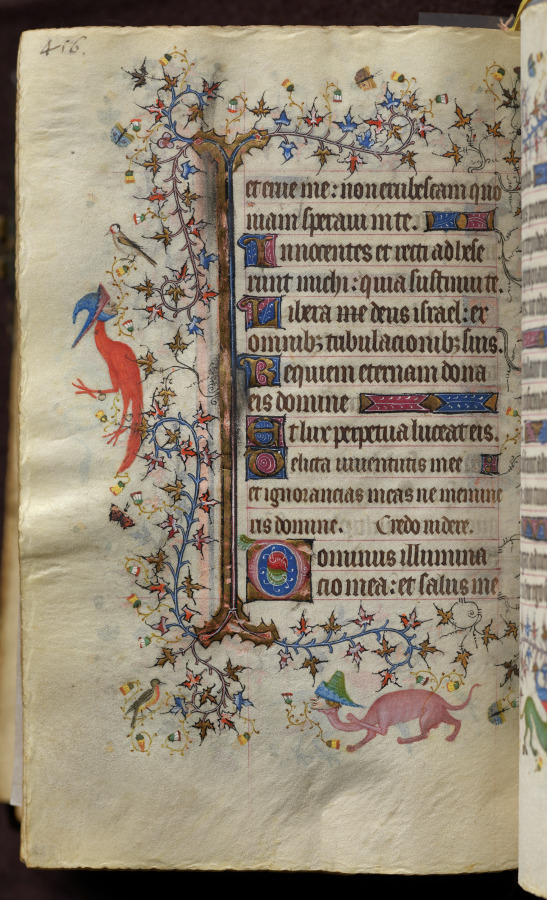 416.
et erue me: non erubescam quo
niam speraui in te.
Innocentes et recti adhese
runt michi: quia sustinui te.
Libera me deus israel: ex
omnibȝ tribulacionibȝ suis.
Requiem eternam dona
eis domine
Et lux perpetua luceat eis.
Delicta iuuentutis mee
et ignorancias meas ne memine
ris domine. Credo videre.
Dominus illumina
cio mea: et salus me